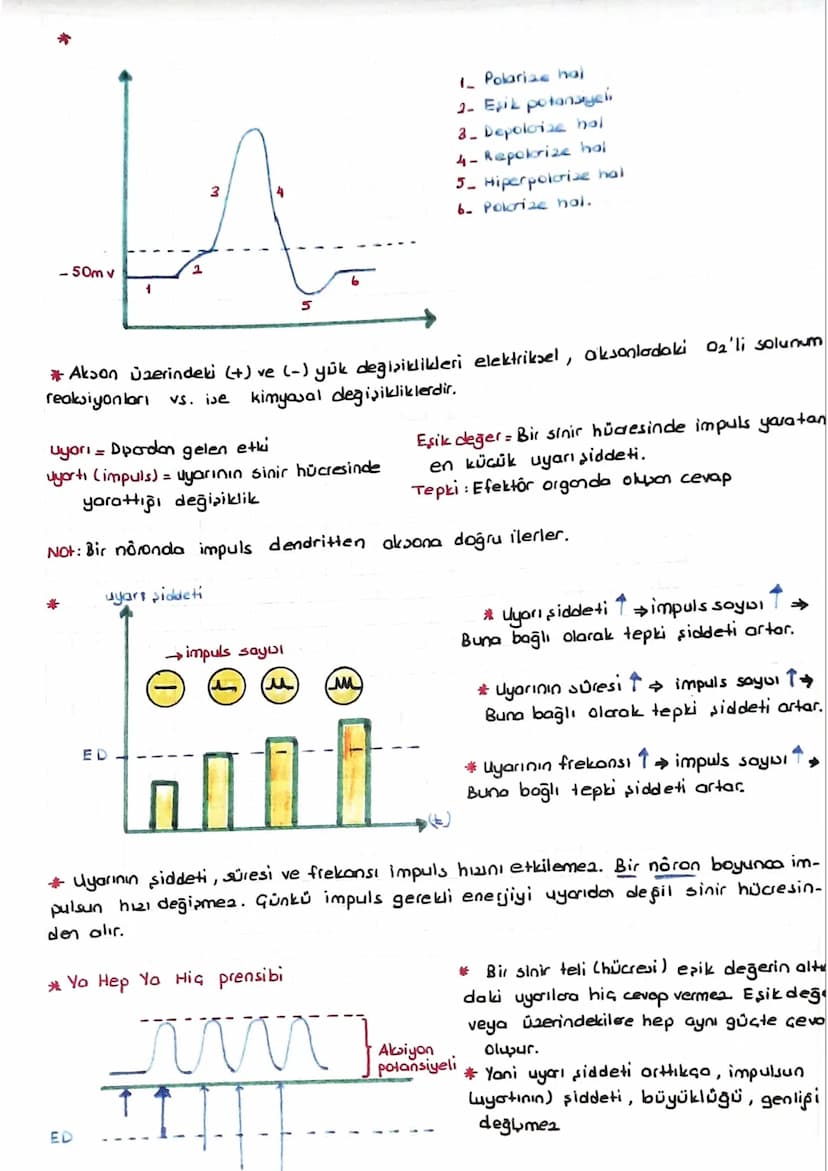 *
1_ Polarize hal
2- Eşik potansiyeli
3_ Depolarize hal
4- Repolarize hal
5_ Hiperpolarize hal
6- Polarize hal.
3
4
-50mv
1
2
5
6
* Akson üzerindeki (+) ve (-) yük değişiklikleri elektriksel, aksonlardaki O2'li solunum
reaksiyonları vs. ise kimyasal değişikliklerdir.
Uyarı = Dışardan gelen etki
Uyartı (impuls) = uyarının sinir hücresinde
yarattığı değişiklik
Eşik değer = Bir sinir hücresinde impuls yaratan
en küçük uyarı şiddeti.
Tepki : Efektör organda oluşan cevap
Not: Bir nöronda impuls dendritten aksona doğru ilerler.
*
uyarı şiddeti
→ impuls sayısı
ED
(t)
* Uyarı şiddeti ↑ → impuls sayısı ↑ →
Buna bağlı olarak tepki şiddeti artar.
* Uyarının süresi ↑ → impuls sayısı ↑ →
Buna bağlı olarak tepki şiddeti artar.
* Uyarının frekansı ↑ → impuls sayısı ↑ →
Buna bağlı tepki şiddeti artar.
* Uyarının şiddeti, süresi ve frekansı impuls hızını etkilemez. Bir nöron boyunca im-
pulsun hızı değişmez. Çünkü impuls gerekli enerjiyi uyarıdan değil sinir hücresin-
den alır.
* Ya Hep Ya Hiç prensibi
Aksiyon
potansiyeli
ED
* Bir sinir teli (hücresi) eşik değerin altı
daki uyarılara hiç cevap vermez. Eşik değe
veya üzerindekilere hep aynı güçte ceva
oluşur.
* Yani uyarı şiddeti arttıkça, impulsun
(uyartının) şiddeti, büyüklüğü, genliği
değişmez